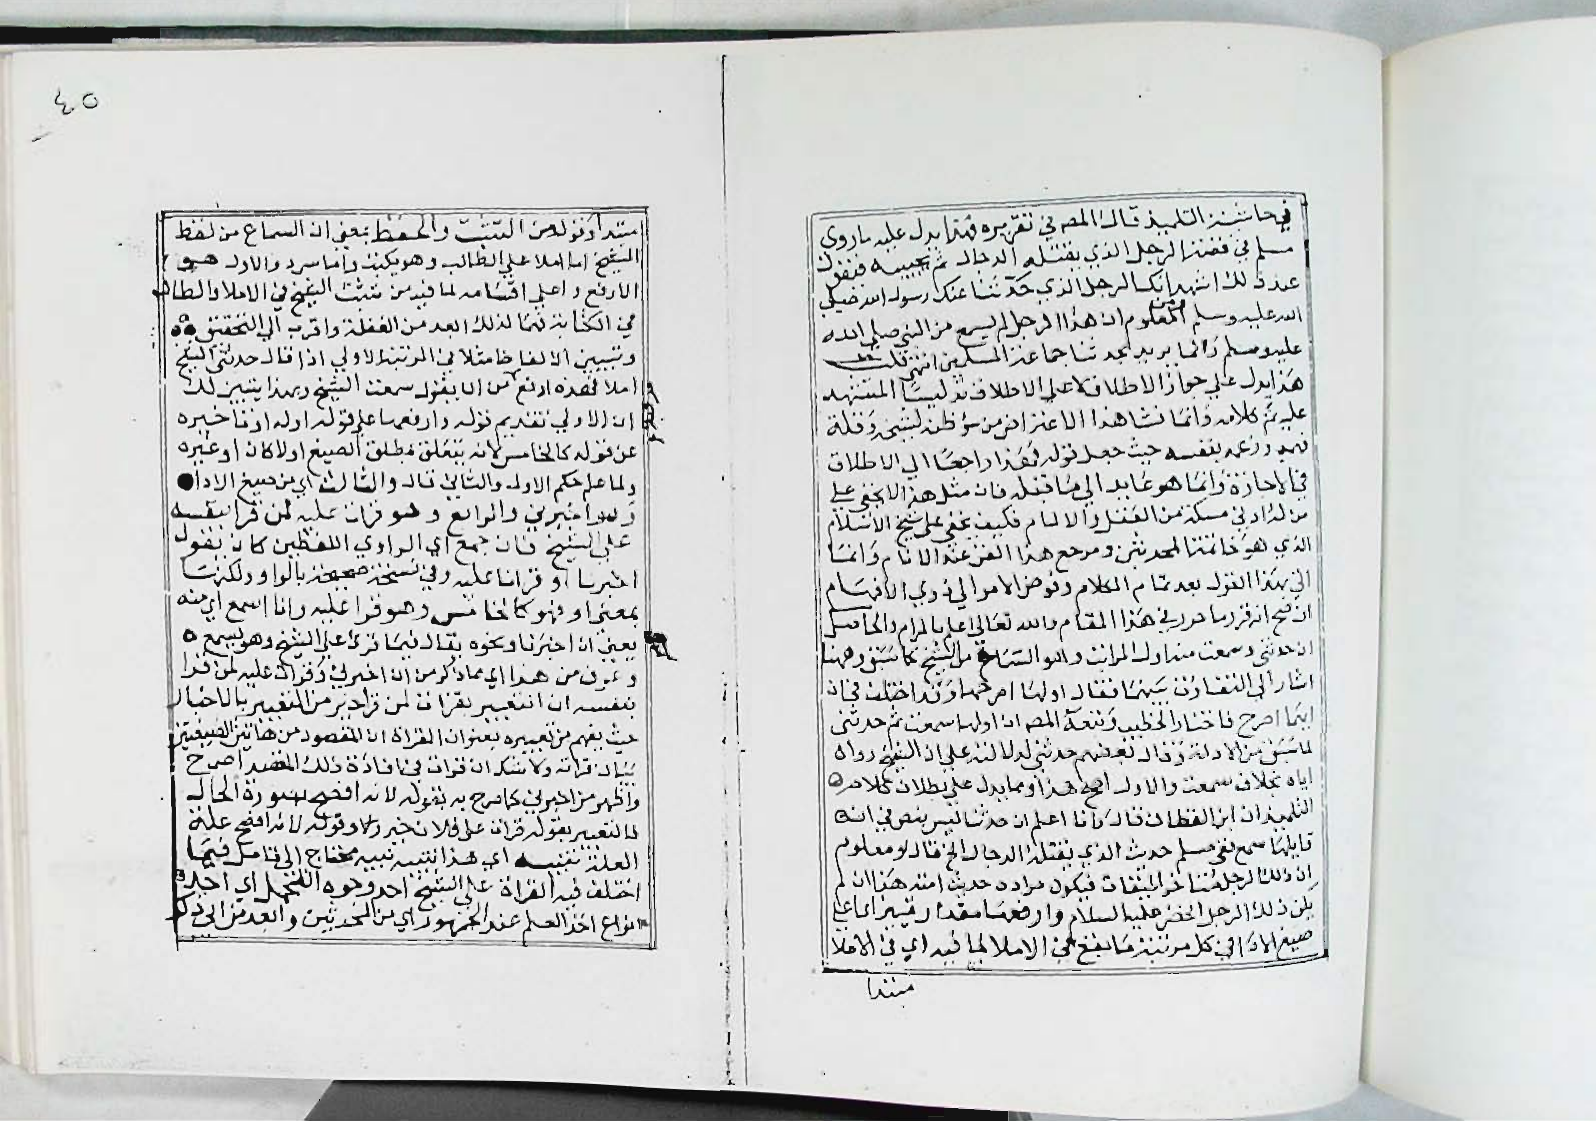 في حاشية التلميذ قال المصه في تقريره هذا يدل عليه ما روى
مسلم في قصة الرجل الذي يقتله الدجال ثم يحييه فيقول
عند ذلك اشهد انك الرجل الذي حدثنا عنك رسول الله صلي
الله عليه وسلم ومن المعلوم ان هذا الرجل لم يسمع من النبي صلي الله
عليه وسلم وانما يريد بحدثنا جماعة المسلمين انتهي قلت
هذا يدل علي جواز الاطلاق لا علي الاطلاق تدليسا المستشهد
عليه ثم كلامه وانما نشا هذا الاعتراض من سؤ ظنه لشيخه وقلة
فهمه وزعمه بنفسه حيث جعل قوله هذا راجعا الي الاطلاق
في الاجازة وانما هو عايد الي ما قبله فان مثل هذا لا يخفي علي
من له ادني مسكة من العقل والالمام فكيف يخفي علي شيخ الاسلام
الذي هو خاتمة المحدثين ومرجع هذا الفن عند الانام وانما
اتي بهذا القول بعد تمام الكلام وفوض الامر الي ذوي الافهام
ان صح انه قرر ما حرر في هذا المقام والله تعالي اعلم بالمرام والحاصل
ان حدثني وسمعت متداول المراتب وهو السماع من الشيخ كما سبق وههنا
اشار الي التفاوت بينهما فقال اولها اصرحها وقد اختلف في ان
ايهما اصرح فاختار الخطيب وتبعه المصه ان اولها سمعت ثم حدثني
لما سبق من الادلة وقال بعضهم حدثني لدلالته علي ان الشيخ رواه
اياه بخلاف سمعت والاول اصح هذا ومما يدل علي بطلان كلام
التلميذ ان ابن القطان قال وانا اعلم ان حدثنا ليس بنص في ان
قايلها سمع ففي مسلم حديث الذي يقتله الدجال الخ قال ومعلوم
ان ذلك الرجل متاخر الميقات فيكون مراده حدث امته هذا ان لم
يكن ذلك الرجل الخضر عليه السلام وارفعها مقدارا تمييز اي اعلي
صيغ الادا في كل مرتبة ما يقع في الاملا لما فيه اي في الاملا
متدا
٤٥
متدا ونوله من التثبت والحفظ بمعني ان السماع من لفظ
الشيخ اما املا علي الطالب وهو يكتب واما سرد والاول هو
الارفع واعلي اقسامه لما فيه من تثبت الشيخ في الاملا والطالب
في الكتابة فهما لذلك ابعد من الغفلة واقرب الي التحقيق
وتبيين الالفاظ مثلا في المرتبة الاولي اذا قال حدثني الشيخ
املا فهذه ارفع من ان يقول سمعت الشيخ وبهذا يتبين لك
ان الاولي تقديم قوله وارفعها علي قوله اوله او تاخيره
عن قوله كالخامس لانه يتعلق بمطلق الصيغ اولا كان او غيره
ولما علم حكم الاول والثاني قال والثالث اي من صيغ الادا
وهو اخبرني والرابع وهو قرات عليه لمن قرا بنفسه
علي الشيخ فان جمع اي الراوي اللفظين كان يقول
اخبرنا او قرانا عليه وفي نسخة صحيحة بالواو ولكنها
بمعني او فهو كالخامس وهو قرا عليه وانا اسمع اي منه
يعني ان اخبرنا ونحوه يقال فيما قرئ علي الشيخ وهو يسمع
وعرف من هذا اي مما ذكر من ان اخبرني وقرات عليه لمن قرا
بنفسه ان التعبير بقرات لمن قرا خير من التعبير بالاخبار
حيث يفهم من تعبيره بعنوان القراة ان المقصود من هاتين الصيغتين
بيان قراته ولا شك ان قرات في افادة ذلك المقصد اصرح
واظهر من اخبرني كما صرح به بقوله لانه افصح بصورة الحال
فالتعبير بقوله قرات علي فلان خبر اولا وقوله لانه افصح علة
العلة تنبيه اي هذا تنبيه نبيه محتاج الي تامل فيما
اختلف فيه القراة علي الشيخ احد وجوه التحمل اي احد
انواع اخذ العلم عند الجمهور اي من المحدثين وابعد من ابي ذلك